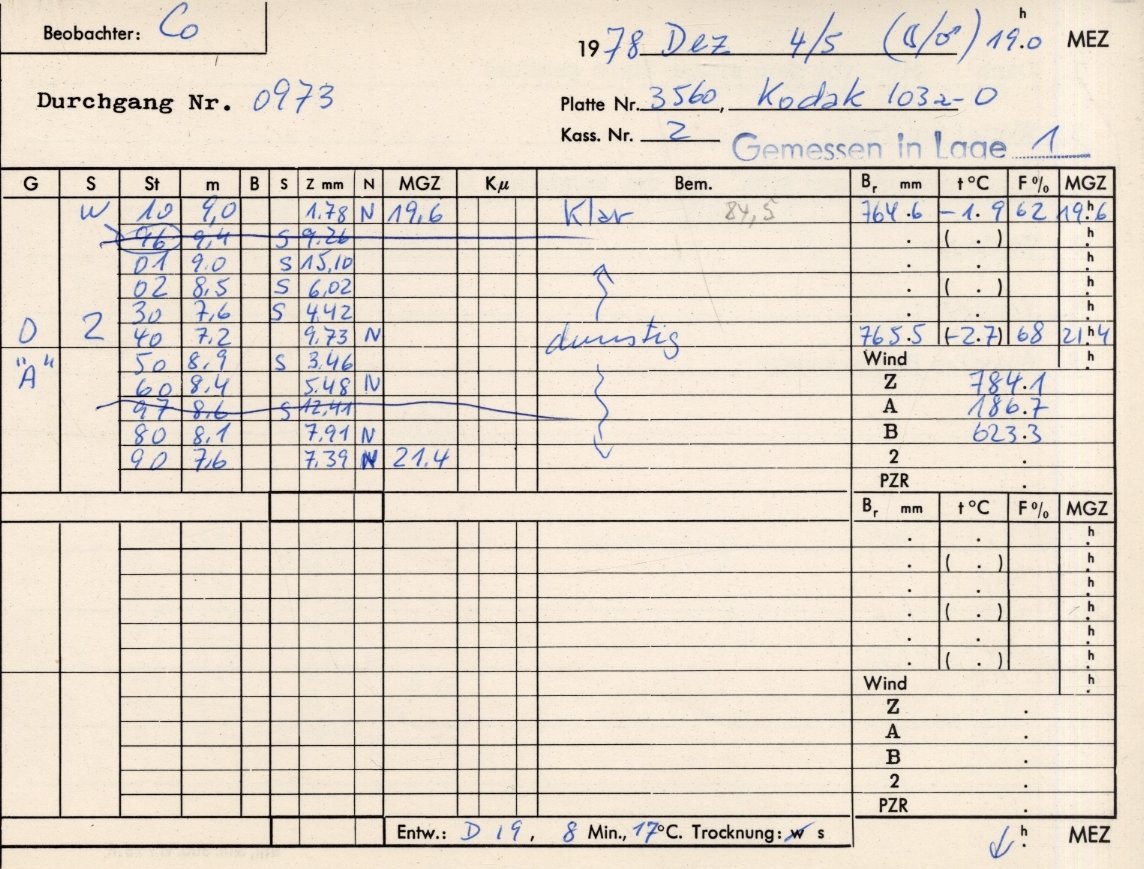 Beobachter: Co
1978 Dez 4/5 (☾/♂) 19.0 h MEZ
Durchgang Nr. 0973
Platte Nr. 3560, Kodak 103a-O
Kass. Nr. 2
Gemessen in Lage 1
G S St m B S Z mm N MGZ Kμ Bem. Br mm t °C F% MGZ
W 10 9,0 1.78 N 19,6 Klar 84,5 764.6 -1.9 62 19.6 h
96 9,4 S 9.26 ( . ) h
01 9.0 S 15,10 h
02 8,5 S 6,02 ( . ) h
30 7,6 S 4.42 h
O 2 40 7,2 9,73 N dunstig 765.5 (-2.7) 68 21.4 h
"A" 50 8,9 S 3.46 Wind h
60 8,4 5.48 N Z 784.1
97 8,6 S 12,41 A 186.7
80 8,1 7,91 N B 623.3
90 7,6 7.39 N 21.4 2 .
PZR .
Br mm t °C F% MGZ
. . h
. ( . ) h
. . h
. ( . ) h
. . h
. ( . ) h
Wind h
Z .
A .
B .
2 .
PZR .
Entw.: D 19, 8 Min., 17°C. Trocknung: w s
h MEZ